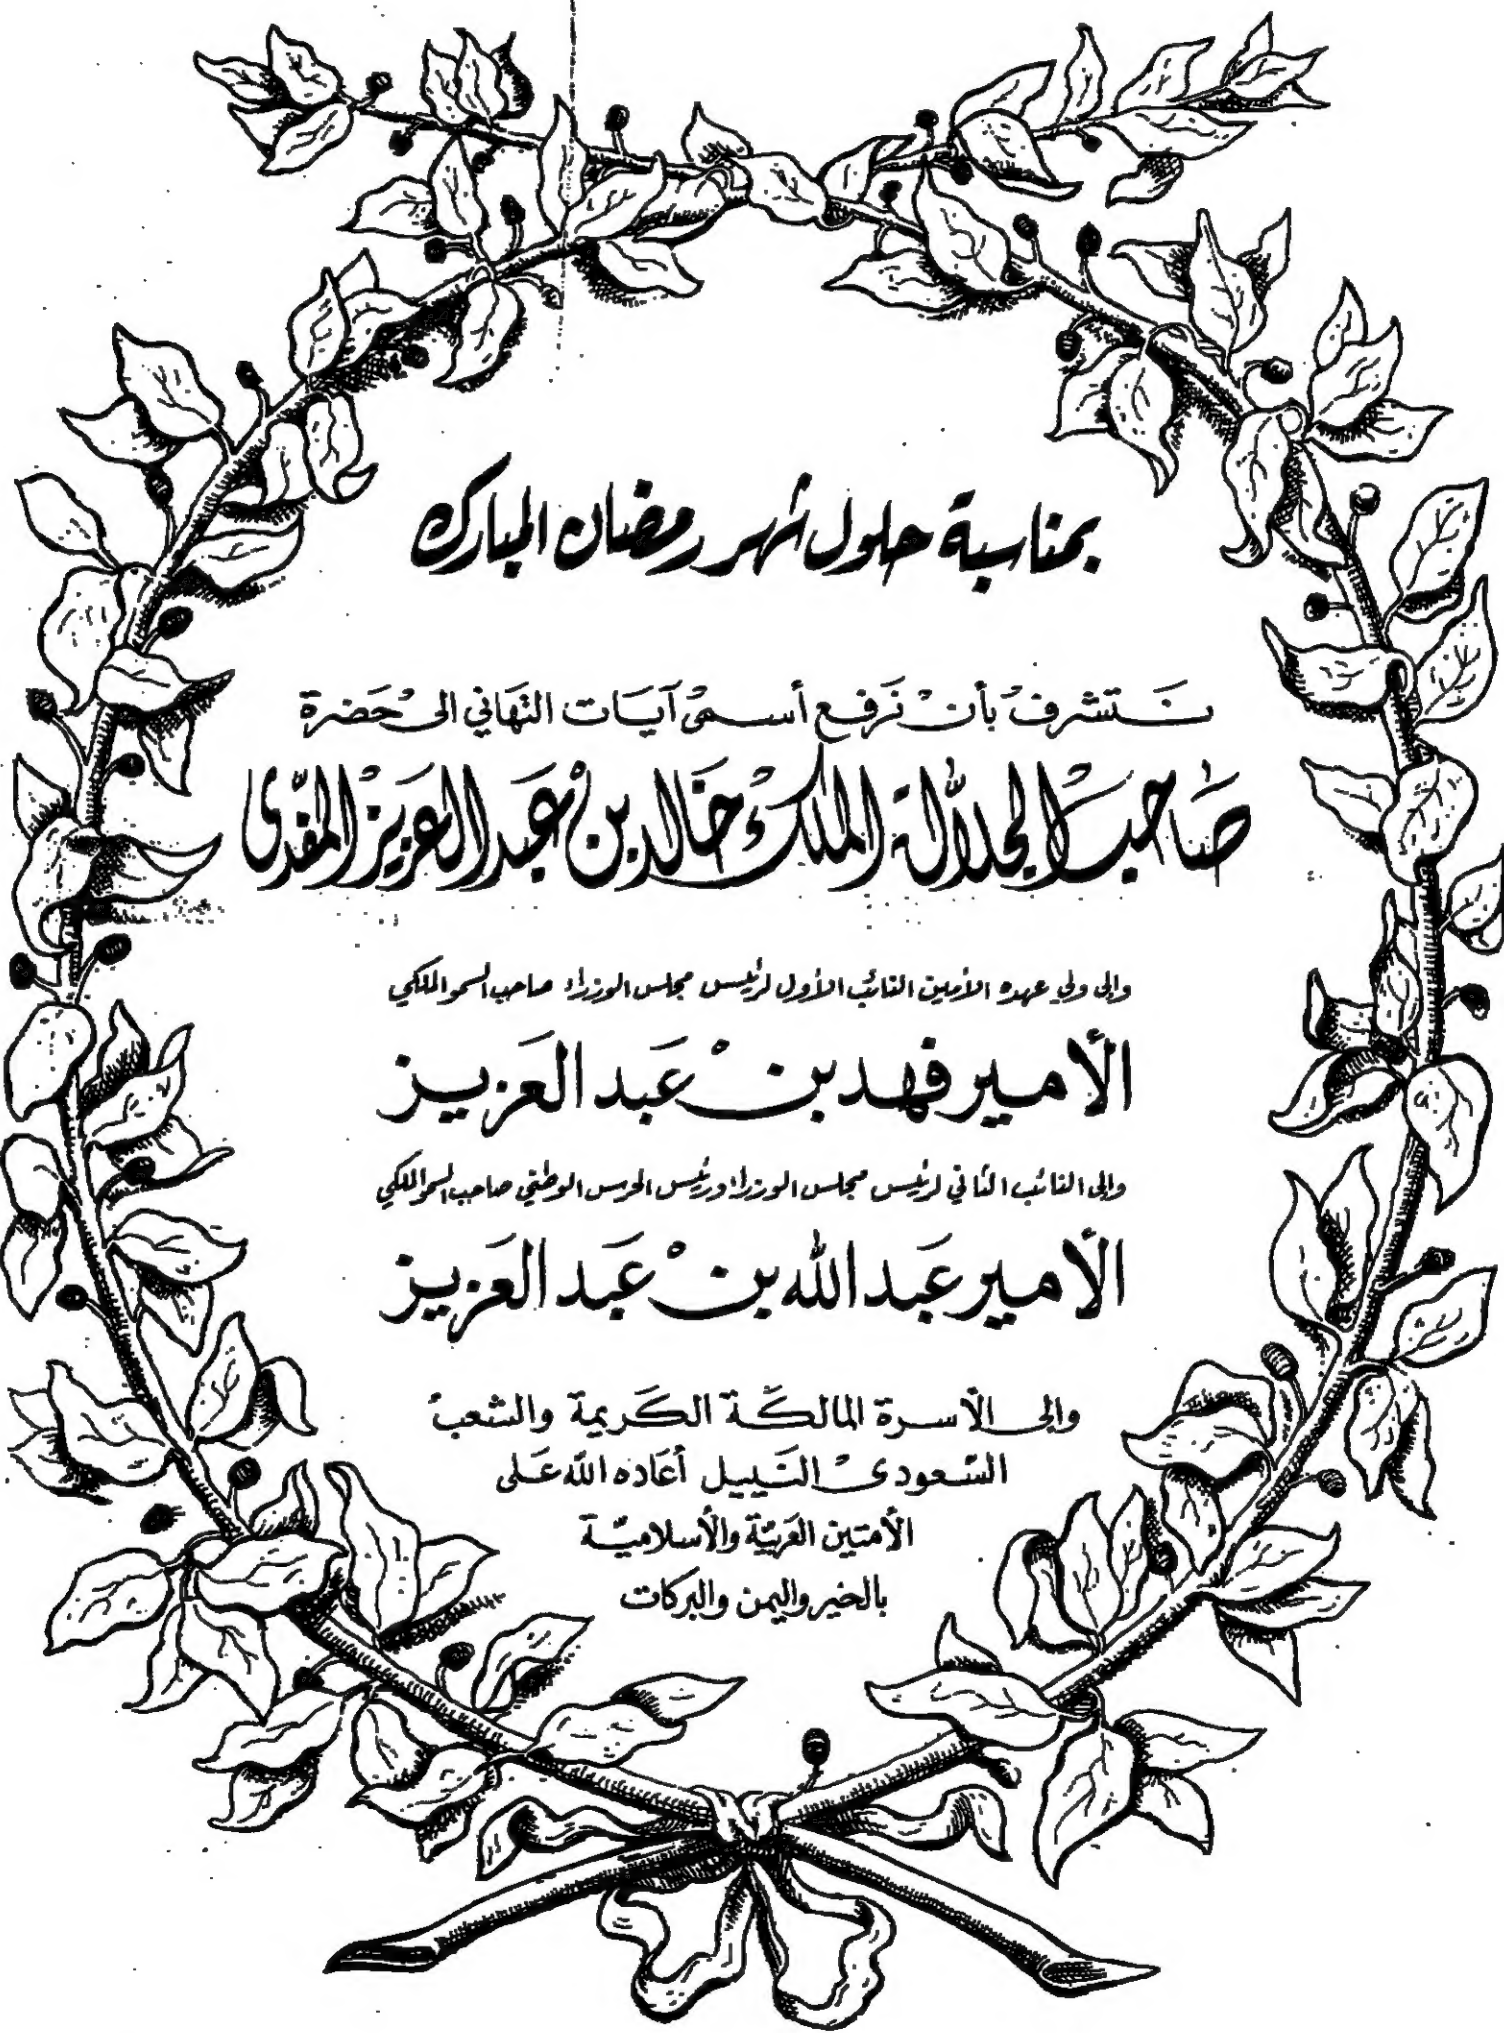 بمناسبة حلول شهر رمضان المبارك
نتشرف بأن نرفع أسمى آيات التهاني الى حضرة
صاحب الجلالة الملك خالد بن عبد العزيز المفدى
والى ولي عهده الأمين النائب الأول لرئيس مجلس الوزراء صاحب السمو الملكي
الأمير فهد بن عبد العزيز
والى النائب الثاني لرئيس مجلس الوزراء ورئيس الحرس الوطني صاحب السمو الملكي
الأمير عبد الله بن عبد العزيز
والى الأسرة المالكة الكريمة والشعب
السعودي النبيل أعاده الله على
الأمتين العربية والأسلامية
بالخير واليمن والبركات